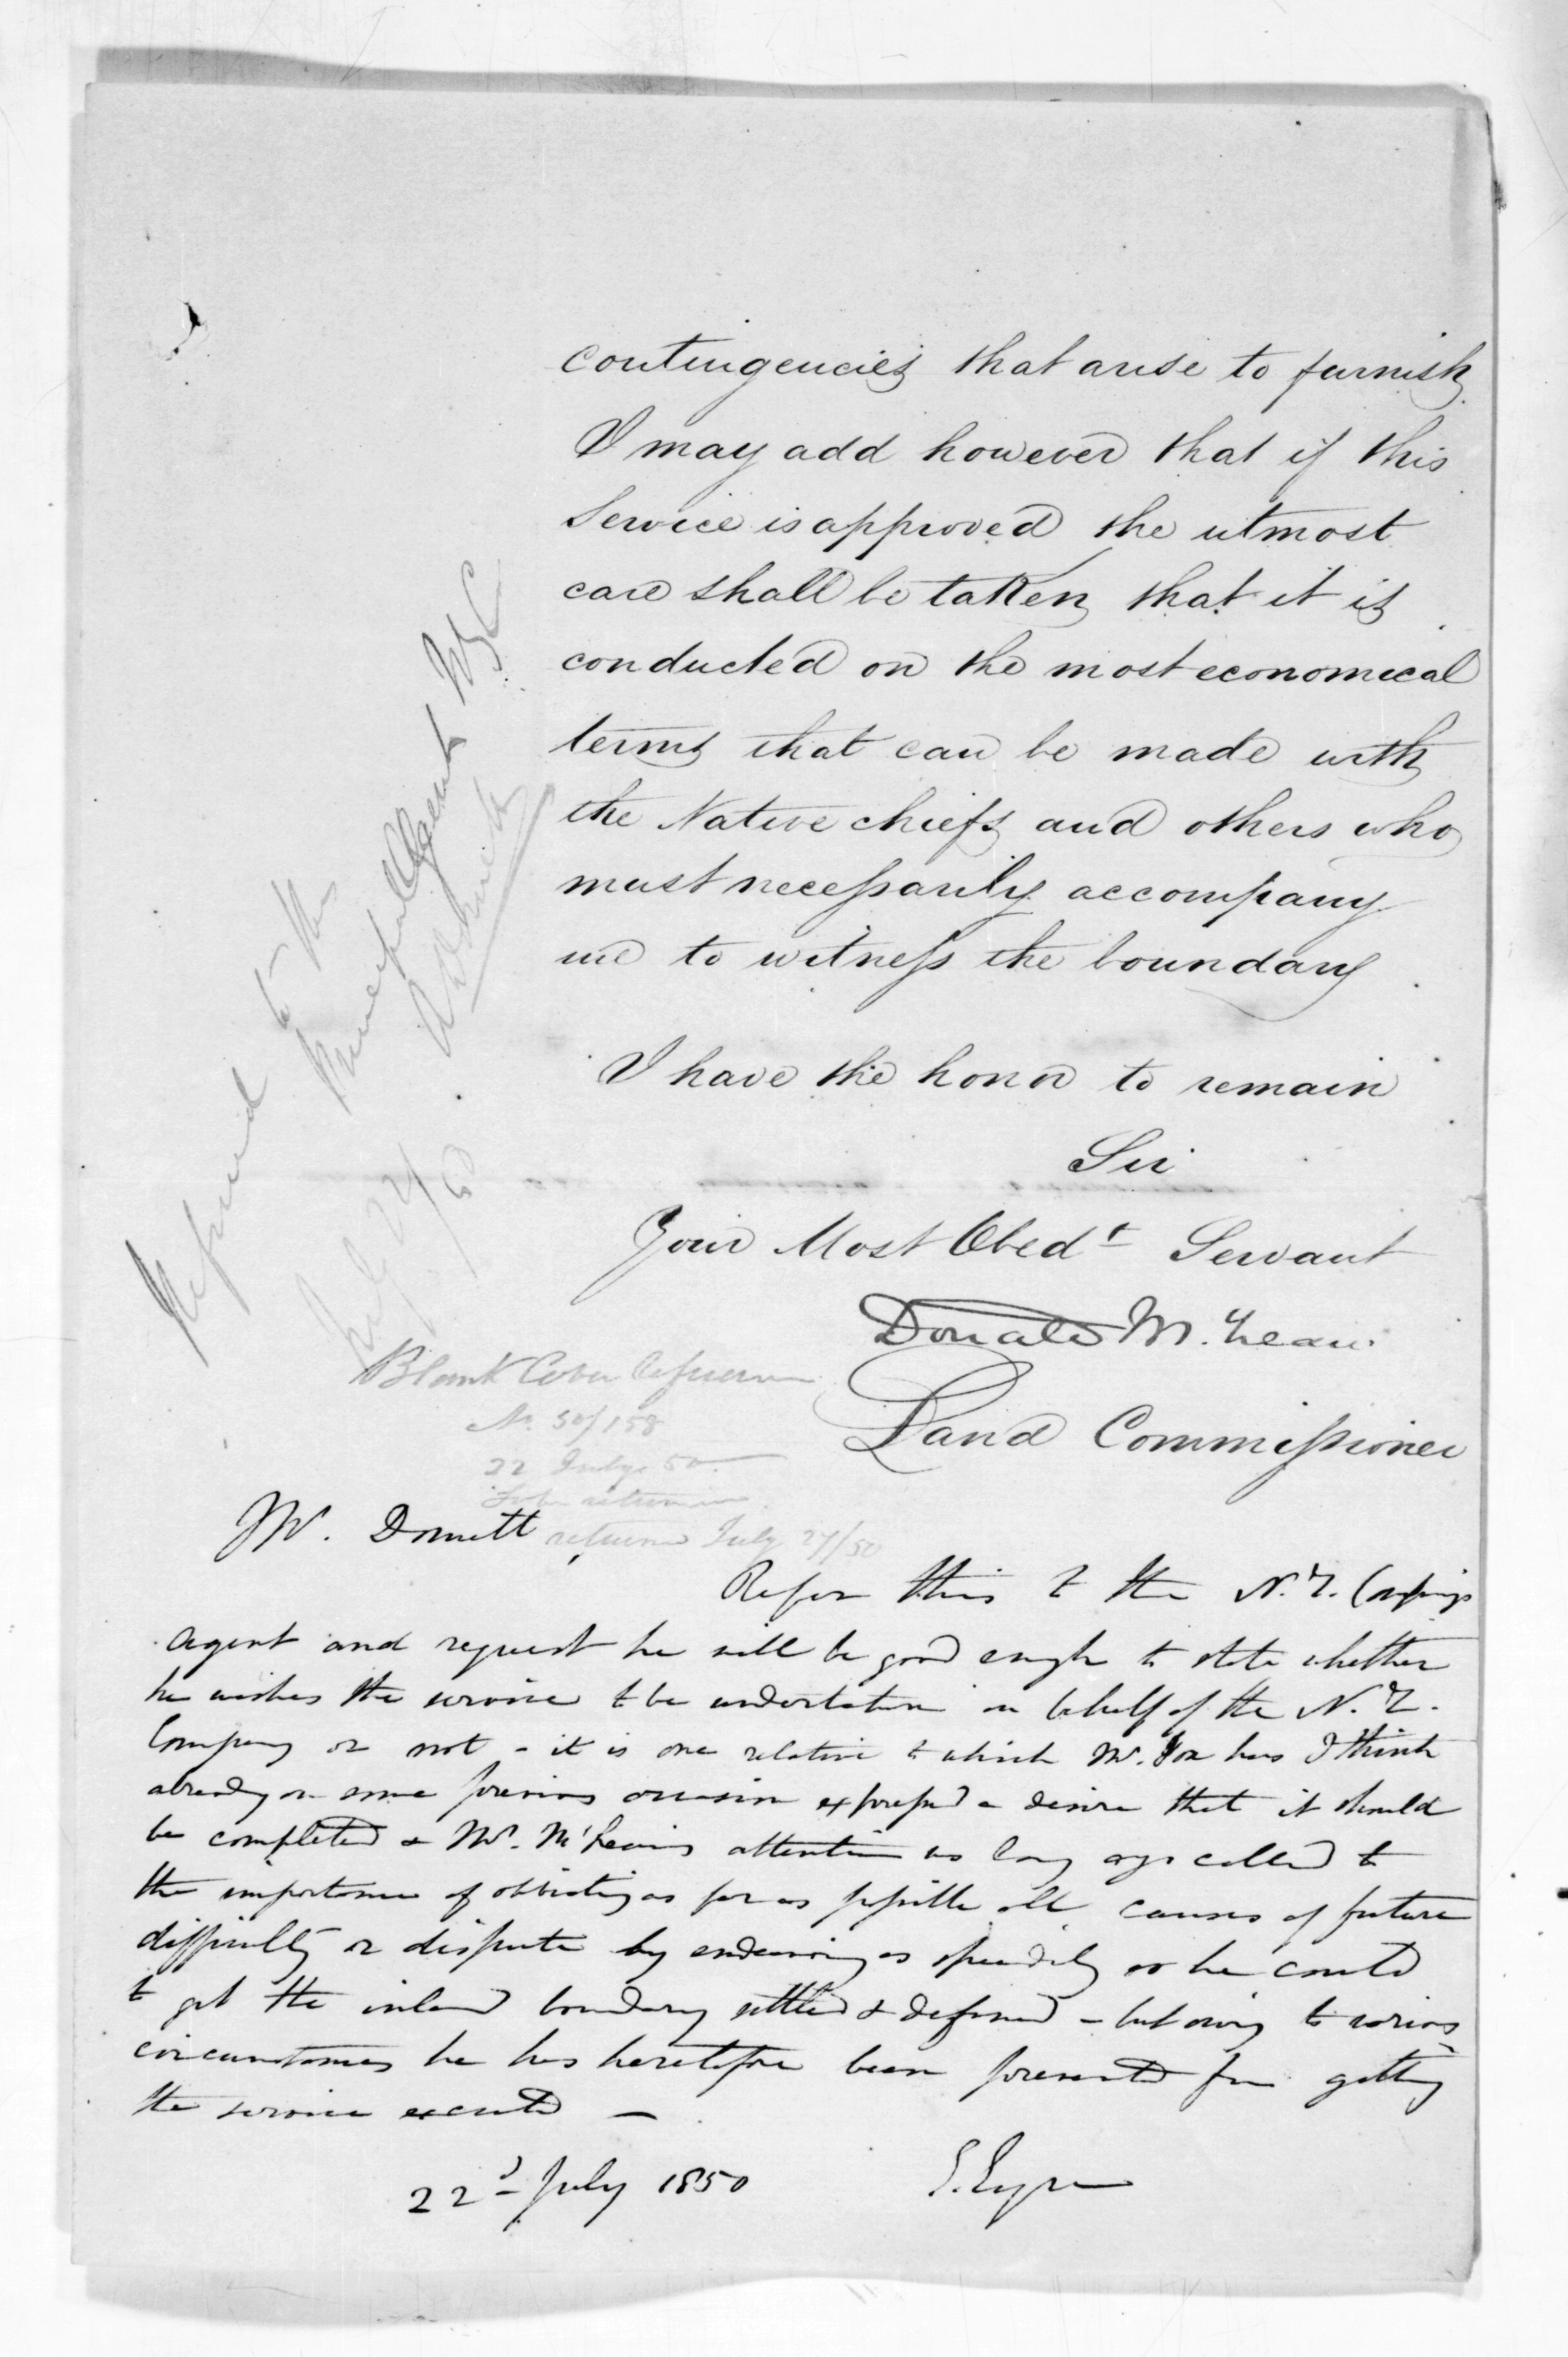 contingencies that arise to furnish
I may add however that if this
Service is approved the utmost
care shall be taken that it is
conducted on the most economical
terms that can be made with
the Native chiefs and others who
must necessarily accompany
me to witness the boundary
I have the honor to remain
Sir
Your Most Obedt Servant
Donald McLean
Land Commissioner
Referred to the
Principal Agent NZC
July 24/50
Blank Cover
No. 50/158
22 July 50.
returned July 27/50
Mr. Domett
Refer this to the N.Z. Companys
Agent and request he will be good enough to state whether
he wishes the service to be undertaken on behalf of the N.Z.
Company or not - it is one relative to which Mr. Fox has I think
already on some previous occasion expressed a desire that it should
be completed & Mr. McLean's attention was long ago called to
the importance of obviating as far as possible all causes of future
difficulty or dispute by endeavoring as speedily as he could
to get the inland boundary settled & defined - but owing to various
circumstances he has heretofore been prevented from getting
the service executed —
22d July 1850
E. Eyre